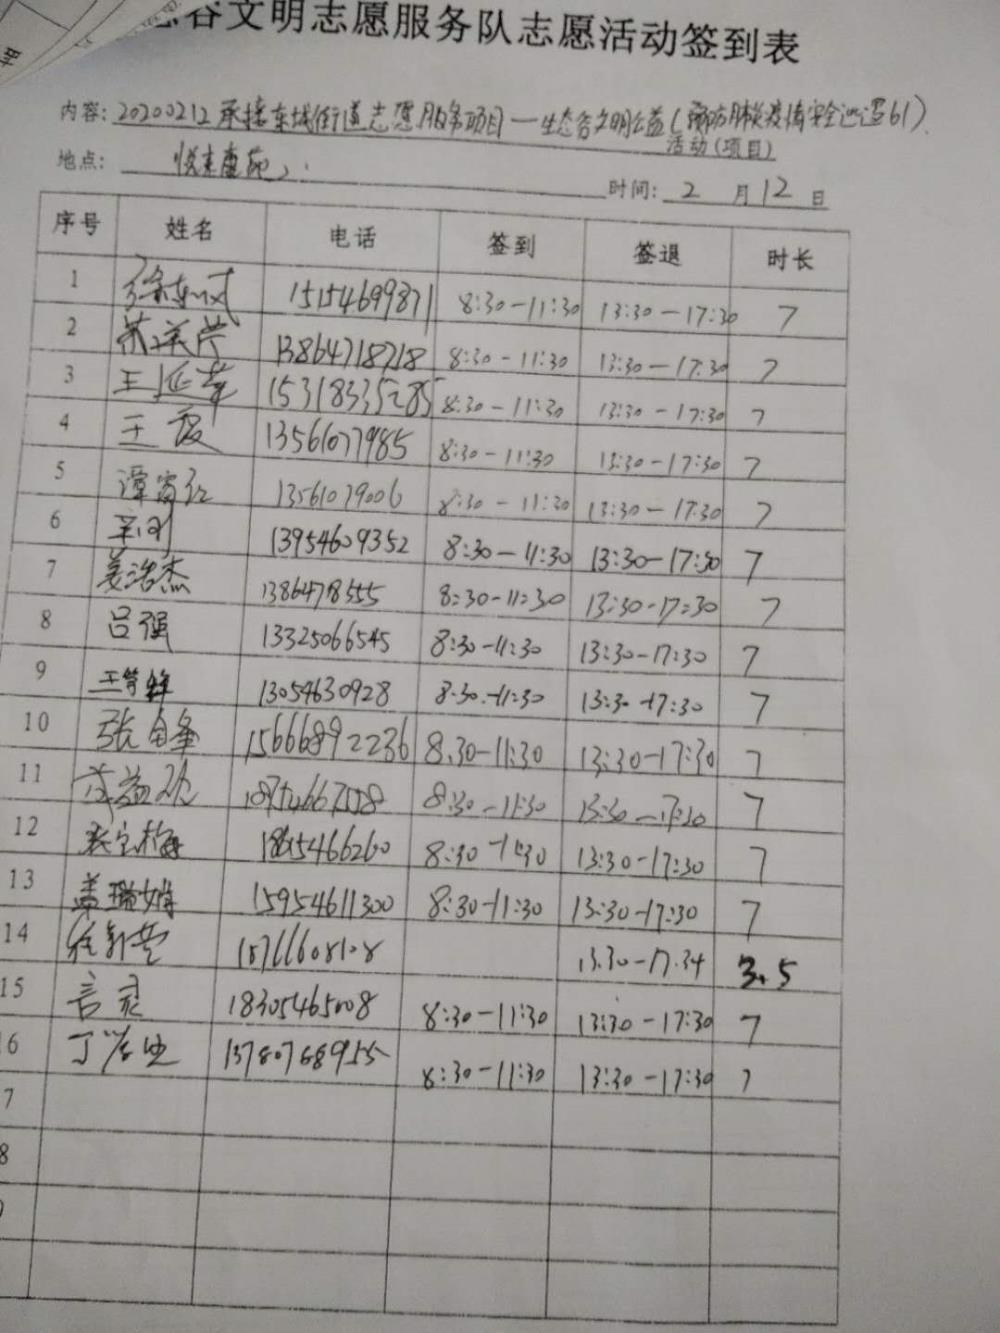 谷文明志愿服务队志愿活动签到表
内容: 20200212承接东城街道志愿服务项目一生态谷文明公益(预防肺炎疫情安全巡逻61)
活动(项目)
地点: 悦来康苑
时间: 2 月 12 日
序号 姓名 电话 签到 签退 时长
1 15154699871 8:30-11:30 13:30-17:30 7
2 13864718718 8:30-11:30 13:30-17:30 7
3 王延华 15318335285 8:30-11:30 13:30-17:30 7
4 王霞 13561077985 8:30-11:30 13:30-17:30 7
5 谭富红 13561079006 8:30-11:30 13:30-17:30 7
6 13954609352 8:30-11:30 13:30-17:30 7
7 姜浩杰 1386478555 8:30-11:30 13:30-17:30 7
8 吕强 13325066545 8:30-11:30 13:30-17:30 7
9 13054630928 8:30-11:30 13:30-17:30 7
10 15666892236 8:30-11:30 13:30-17:30 7
11 8:30-11:30 13:30-17:30 7
12 8:30-11:30 13:30-17:30 7
13 盖瑞娟 15954611300 8:30-11:30 13:30-17:30 7
14 13:30-17:34 3.5
15 18305465008 8:30-11:30 13:30-17:30 7
6 13780768955 8:30-11:30 13:30-17:30 7
7
8